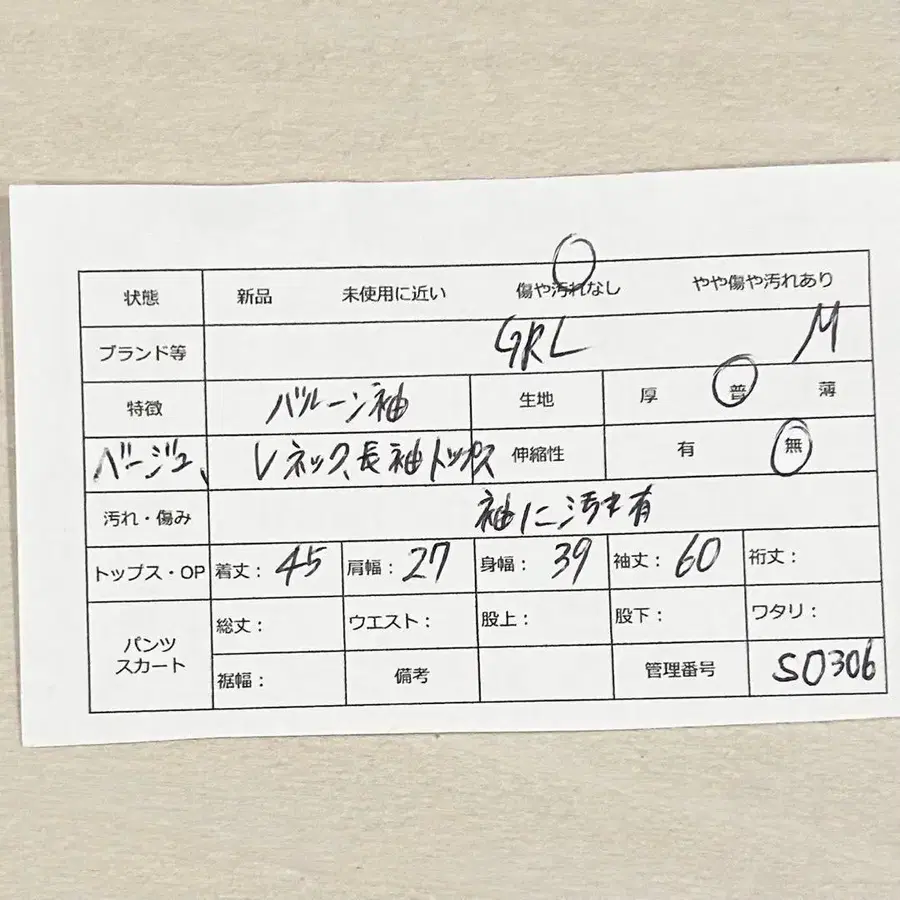 状態 新品 未使用に近い 傷や汚れなし やや傷や汚れあり
ブランド等 GRL M
特徴 バルーン袖 生地 厚 普 薄
ベージュ、 Vネック、長袖トップス 伸縮性 有 無
汚れ・傷み 袖に汚れ有
トップス・OP 着丈： 45 肩幅： 27 身幅： 39 袖丈： 60 裄丈：
パンツ スカート 総丈： ウエスト： 股上： 股下： ワタリ：
裾幅： 備考 管理番号 S0306